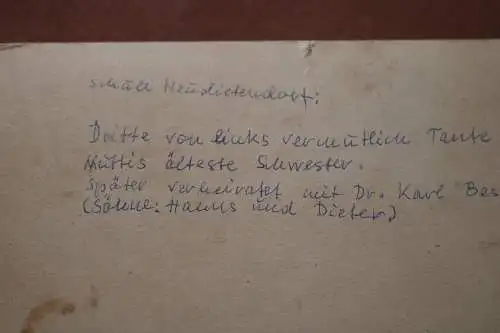 Schule Neudietendorf:
Dritte von links vermutlich Tante
Muttis älteste Schwester.
Später verheiratet mit Dr. Karl Bes
(Söhne: Hanns und Dieter)